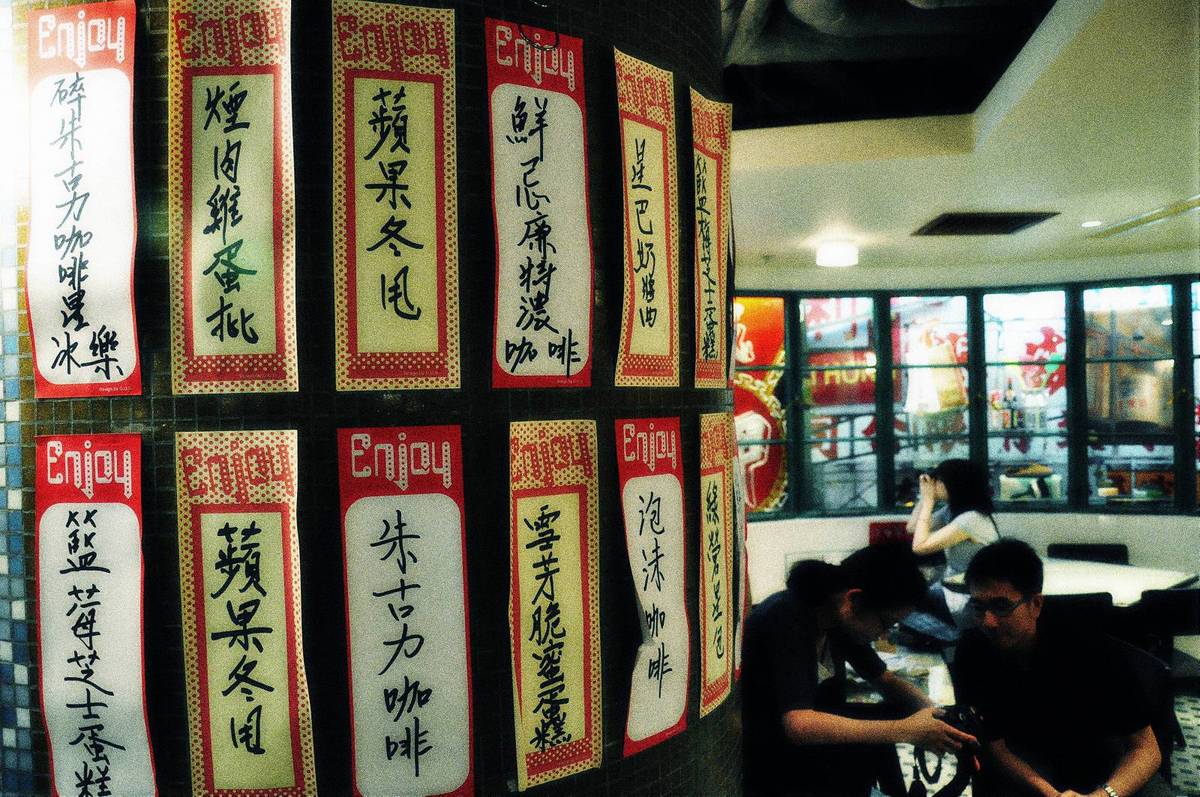 Enjoy
碎朱古力咖啡星冰樂
Design by G.O.D.
Enjoy
煙肉雞蛋批
Enjoy
蘋果冬甩
Enjoy
鮮忌廉特濃咖啡
Enjoy
星巴奶醬
Enjoy
芝士蛋糕
Enjoy
籃莓芝士蛋糕
Enjoy
蘋果冬甩
Enjoy
朱古力咖啡
Enjoy
雪芳脆蜜蛋糕
Enjoy
泡沫咖啡
Enjoy
星包